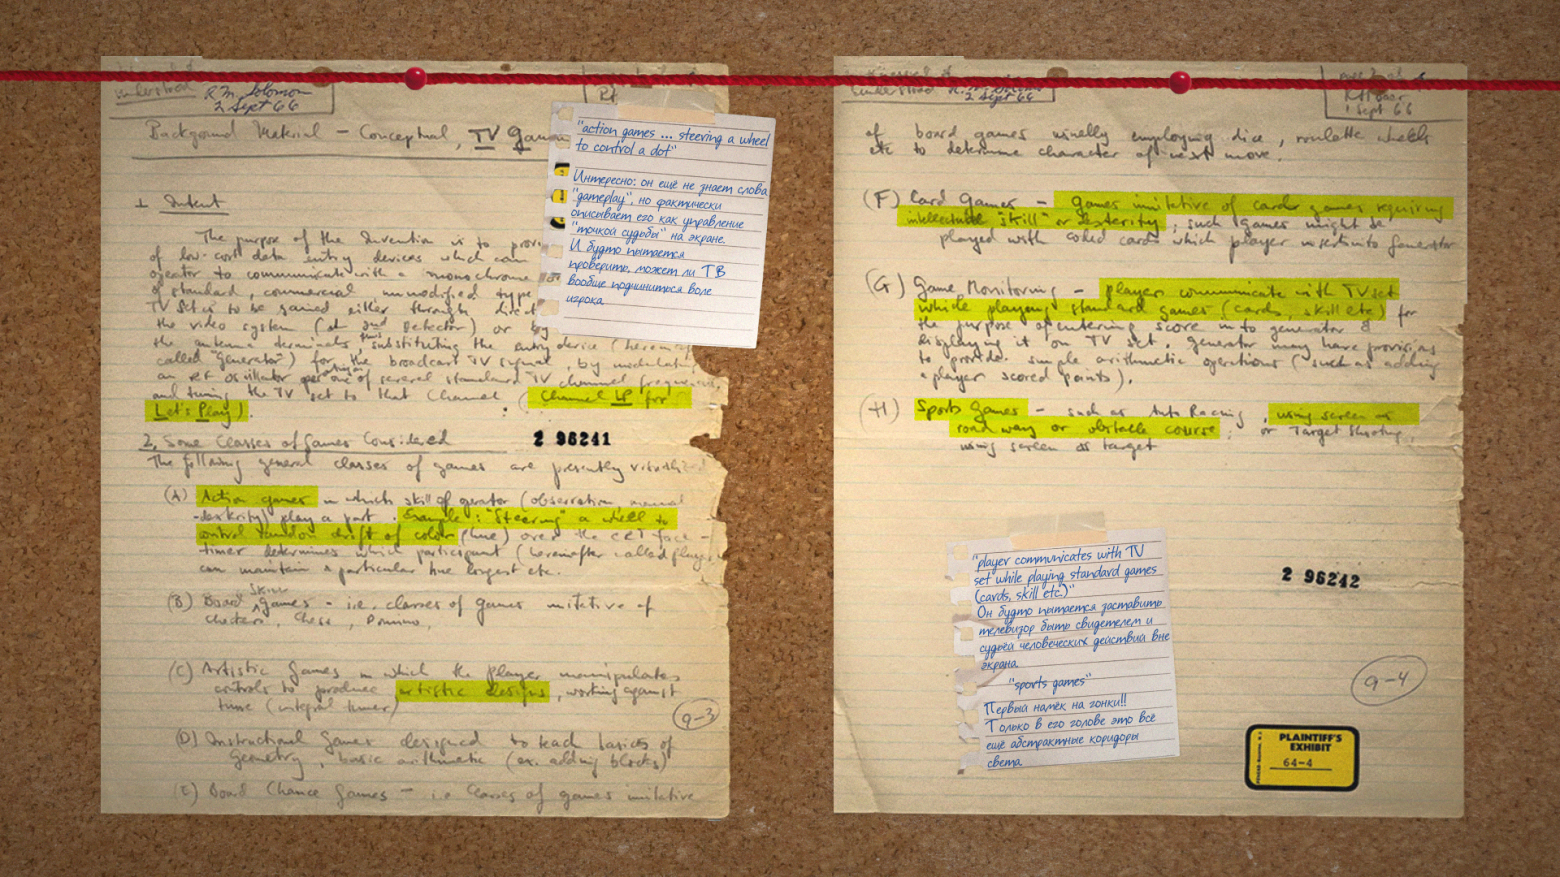 understood R.M. Solomon
2 Sept 66
Background Material - Conceptual, TV Gam
1 Intent
The purpose of the Invention is to provi
of low-cost data entry devices which can
operator to communicate with a monochrome
of standard, commercial unmodified type
TV set is to be gained either through direct
the video system (at 2nd Detector) or by
the antenna terminals thus substituting the entry device (herein
called "Generator") for the broadcast TV signal, by modulating
an RF oscillator operating on one of several standard TV channel frequencies
and tuning the TV set to that Channel (Channel LP for
Let's Play).
2. Some Classes of Games Considered
2 96241
The following general classes of games are presently visualized
(A) Action games in which skill of operator (observation, manual
-dexterity) play a part. Example: "Steering" a wheel to
control random drift of color (hue) over the CRT face -
timer determines which participant (hereinafter called player)
can maintain a particular hue longest etc.
(B) Board skill games - i.e. classes of games imitative of
checkers, Chess, Domino,
(C) Artistic Games in which the player manipulates
controls to produce artistic designs, working against
time (integral timer)
9-3
(D) Instructional Games designed to teach basics of
Geometry, basic arithmetic (ex. adding blocks)
(E) Board Chance Games - i.e. Classes of games imitative
"action games ... steering a wheel
to control a dot"
Интересно: он ещё не знает слова
"gameplay", но фактически
описывает его как управление
"точкой судьбы" на экране.
И будто пытается
проверить, может ли ТВ
вообще подчиниться воле
игрока.
2 Sept 66
1 Sept 66
of board games usually employing dice, roulette wheels
etc to determine character of next move.
(F) Card Games - games imitative of card games requiring
intellectual "skill" or dexterity, such games might be
played with coded cards which player inserts into Generator
(G) Game Monitoring - player communicate with TV set
while playing standard games (cards, skill etc) for
the purpose of entering score into generator &
displaying it on TV set. Generator may have provisions
to provide simple arithmetic operations (such as adding
a player scored points).
(H) Sports Games - such as Auto Racing, using screen as
road way or obstacle course; or Target Shooting,
using screen as target
"player communicates with TV
set while playing standard games
(cards, skill etc.)"
Он будто пытается заставить
телевизор быть свидетелем и
судьёй человеческих действий вне
экрана.
"sports games"
Первый намёк на гонки!!
Только в его голове это всё
ещё абстрактные коридоры
света.
2 96242
9-4
PLAINTIFF'S
EXHIBIT
64-4